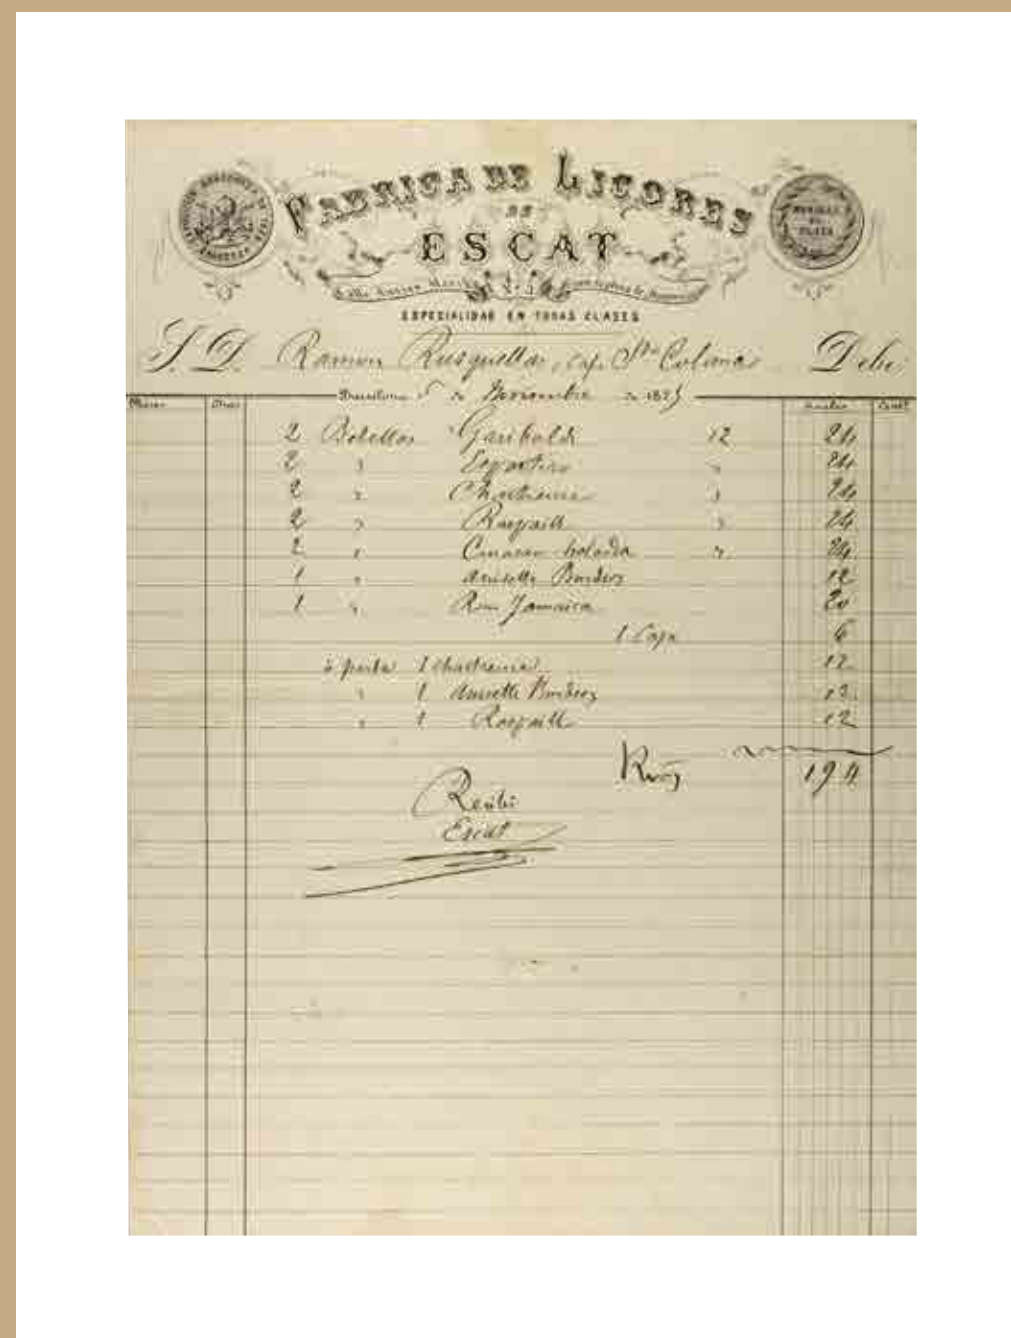 FABRICA DE LICORES
DE
ESCAT
ESPECIALIDAD EN TODAS CLASES
S. D. Ramon Rusquellas, cap. Debe
Barcelona 5 de Noviembre de 187
2 Botellas Garibaldi 12 24
2 " Espartero " 24
2 " Chartreuse " 24
2 " Raspaill " 24
2 " Curacao holanda " 24
1 " Anisette Burdeos 12
1 " Rom Jamaica 20
1 Caja 6
á parte 1 chartreuse 12
" 1 Anisette Burdeos 12
" 1 Raspaill 12
194
Recibí
Escat